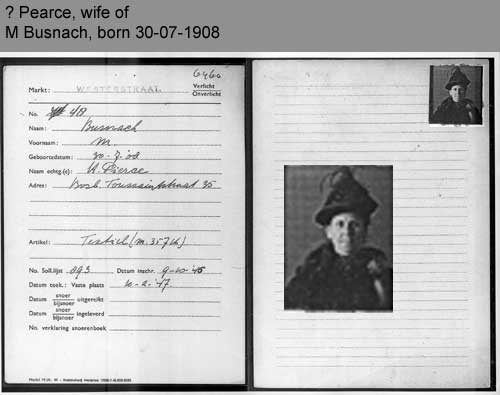 ? Pearce, wife of
M Busnach, born 30-07-1908
6460
Markt: WESTERSTRAAT Verlicht
Onverlicht
No. 48
Naam: Busnach
Voornaam: M.
Geboortedatum: 30-7-'08
Naam echtg.(e): Pierse
Adres: Bosb. Toussaintstraat 35
Artikel: Textiel (m. 357 K)
No. Soll.lijst 093 Datum inschr. 9-10-'45
Datum toek.: Vaste plaats 10-2-'47
Datum snoer
bijsnoer uitgereikt
Datum snoer
bijsnoer ingeleverd
No. verklaring snoerenboek